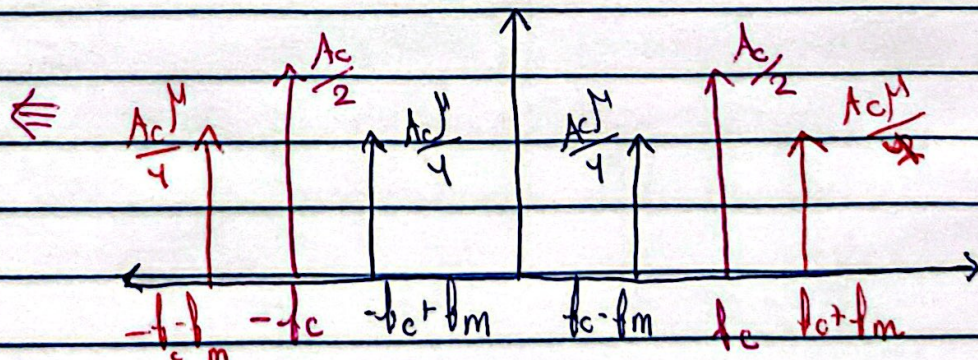 Ac/2 Ac/2
Acμ/4 Acμ/4 Acμ/4 Acμ/
-fc-fm -fc -fc+fm fc-fm fc fc+fm